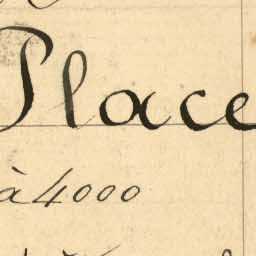 Place
à 4000